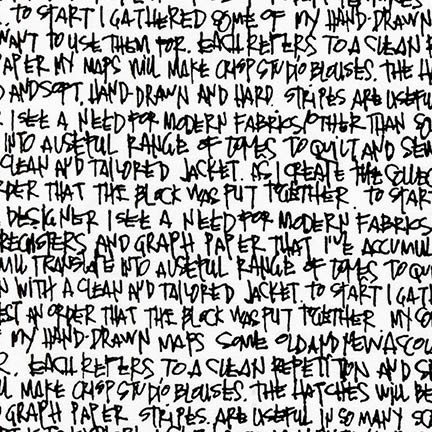 . TO START I GATHERED SOME OF MY HAND-DRAWN
WANT TO USE THEM FOR. EACH REFERS TO A CLEAN
PAPER MY MAPS WILL MAKE CRISP STUDIO BLOUSES. THE HA
AND SOFT. HAND-DRAWN AND HARD STRIPES ARE USEFUL
I SEE A NEED FOR MODERN FABRICS/OTHER THAN SO
INTO A USEFUL RANGE OF TONES TO QUILT AND SEW
CLEAN AND TAILORED JACKET. AS I CREATE THE COLLEC
ORDER THAT THE BLOCK WAS PUT TOGETHER. TO START
DESIGNER I SEE A NEED FOR MODERN FABRICS
AND GRAPH PAPER THAT I'VE ACCUMUL
WILL TRANSLATE INTO A USEFUL RANGE OF TONES TO QU
N WITH A CLEAN AND TAILORED JACKET. TO START I GATH
AN ORDER THAT THE BLOCK WAS PUT TOGETHER MY SO
MY HAND-DRAWN MAPS SOME OLD AND NEW
R. EACH REFERS TO A CLEAN REPETITION AND S
MAKE CRISP STUDIO BLOUSES. THE HATCHES WILL BE
GRAPH PAPER STRIPES. ARE USEFUL IN SO MANY